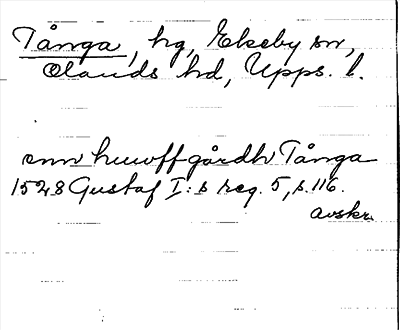 Tånga, hg, Ekeby sn,
Olands hd, Upps. l.
enn huuoffgårdh Tånga
1528 Gustaf I:s reg. 5, s. 116.
avskr.